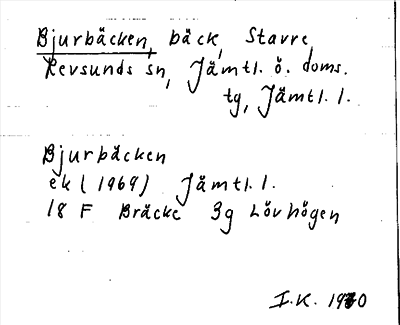 Bjurbäcken, bäck, Stavre,
Revsunds sn, Jämtl. ö. doms.
tg, Jämtl. l.
Bjurbäcken
ek (1969) Jämtl. l.
18 F Bräcke 3g Lövhögen
I.K. 1970